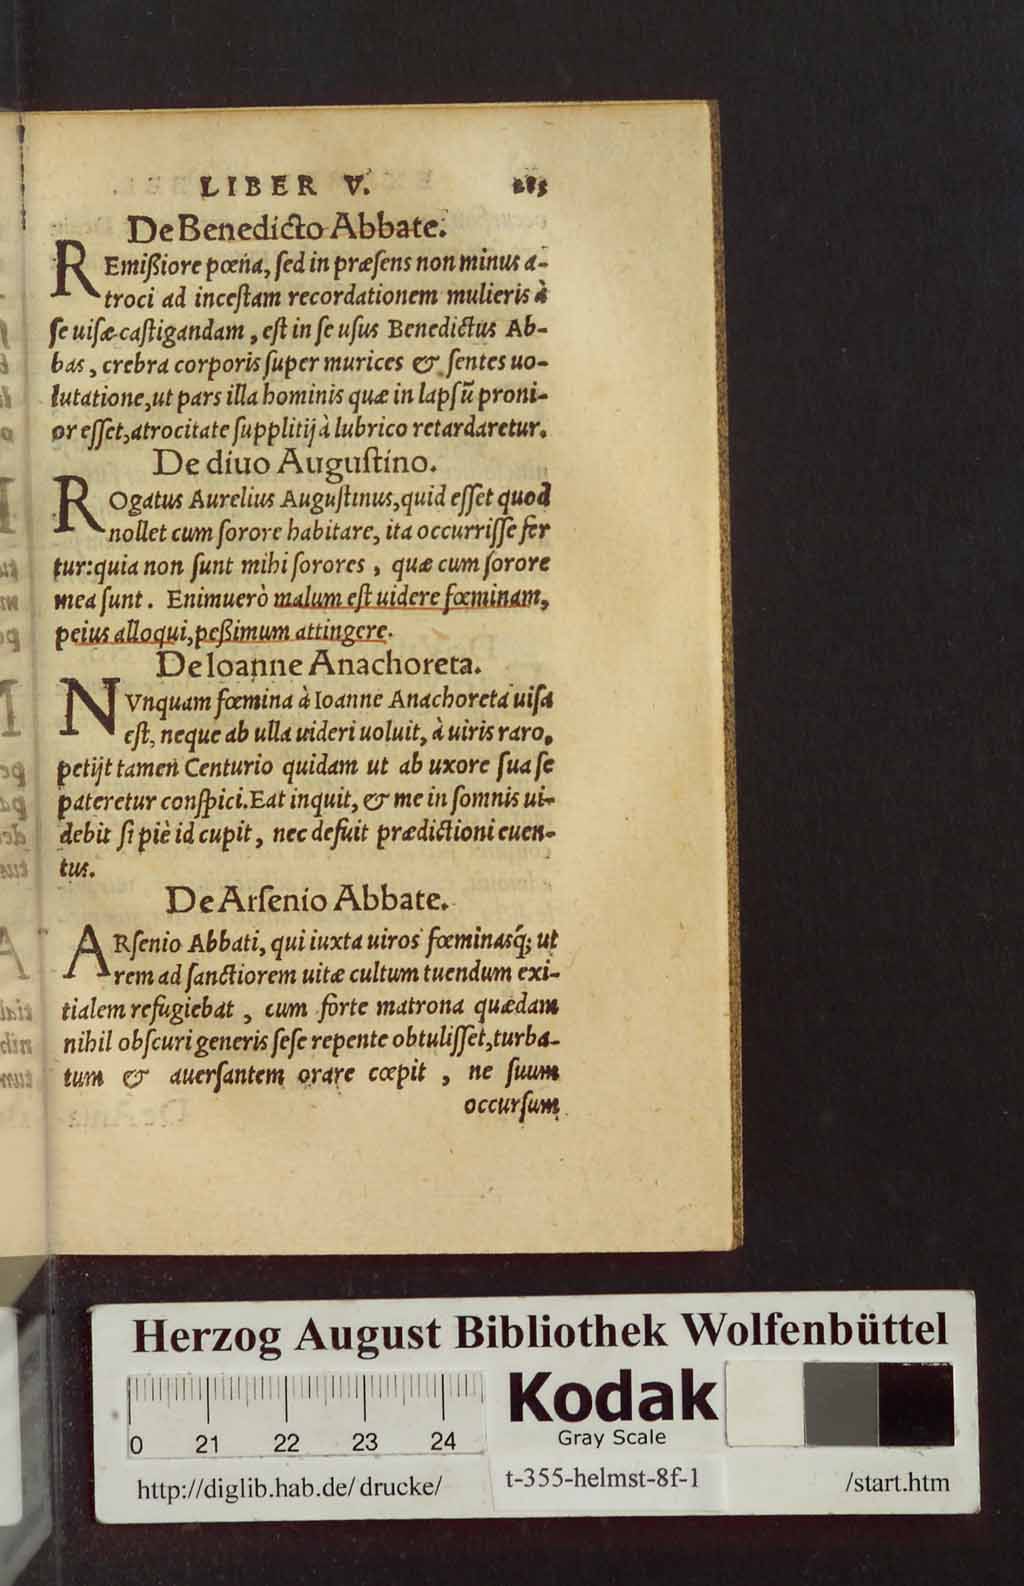 LIBER V.
De Benedicto Abbate.
REmißiore pœna, ſed in præſens non minus a-
troci ad inceſtam recordationem mulieris à
ſe uiſæ caſtigandam, eſt in ſe uſus Benedictus Ab-
bas, crebra corporis ſuper murices & ſentes uo-
lutatione, ut pars illa hominis quæ in lapſū proni-
or eſſet, atrocitate ſupplitij à lubrico retardaretur.
De diuo Auguſtino.
ROgatus Aurelius Auguſtinus, quid eſſet quod
nollet cum ſorore habitare, ita occurriſſe fer
tur: quia non ſunt mihi ſorores, quæ cum ſorore
mea ſunt. Enimuerò malum eſt uidere fœminam,
peius alloqui, peßimum attingere.
De Ioanne Anachoreta.
NVnquam fœmina à Ioanne Anachoreta uiſa
eſt, neque ab ulla uideri uoluit, à uiris raro,
petijt tamen Centurio quidam ut ab uxore ſua ſe
pateretur conſpici. Eat inquit, & me in ſomnis ui-
debit ſi piè id cupit, nec defuit prædictioni euen-
tus.
De Arſenio Abbate.
ARſenio Abbati, qui iuxta uiros fœminasq́; ut
rem ad ſanctiorem uitæ cultum tuendum exi-
tialem refugiebat, cum forte matrona quædam
nihil obſcuri generis ſeſe repente obtuliſſet, turba-
tum & auerſantem orare cœpit, ne ſuum
occurſum
Herzog August Bibliothek Wolfenbüttel
Kodak
Gray Scale
0 21 22 23 24
http://diglib.hab.de/drucke/ t-355-helmst-8f-1 /start.htm